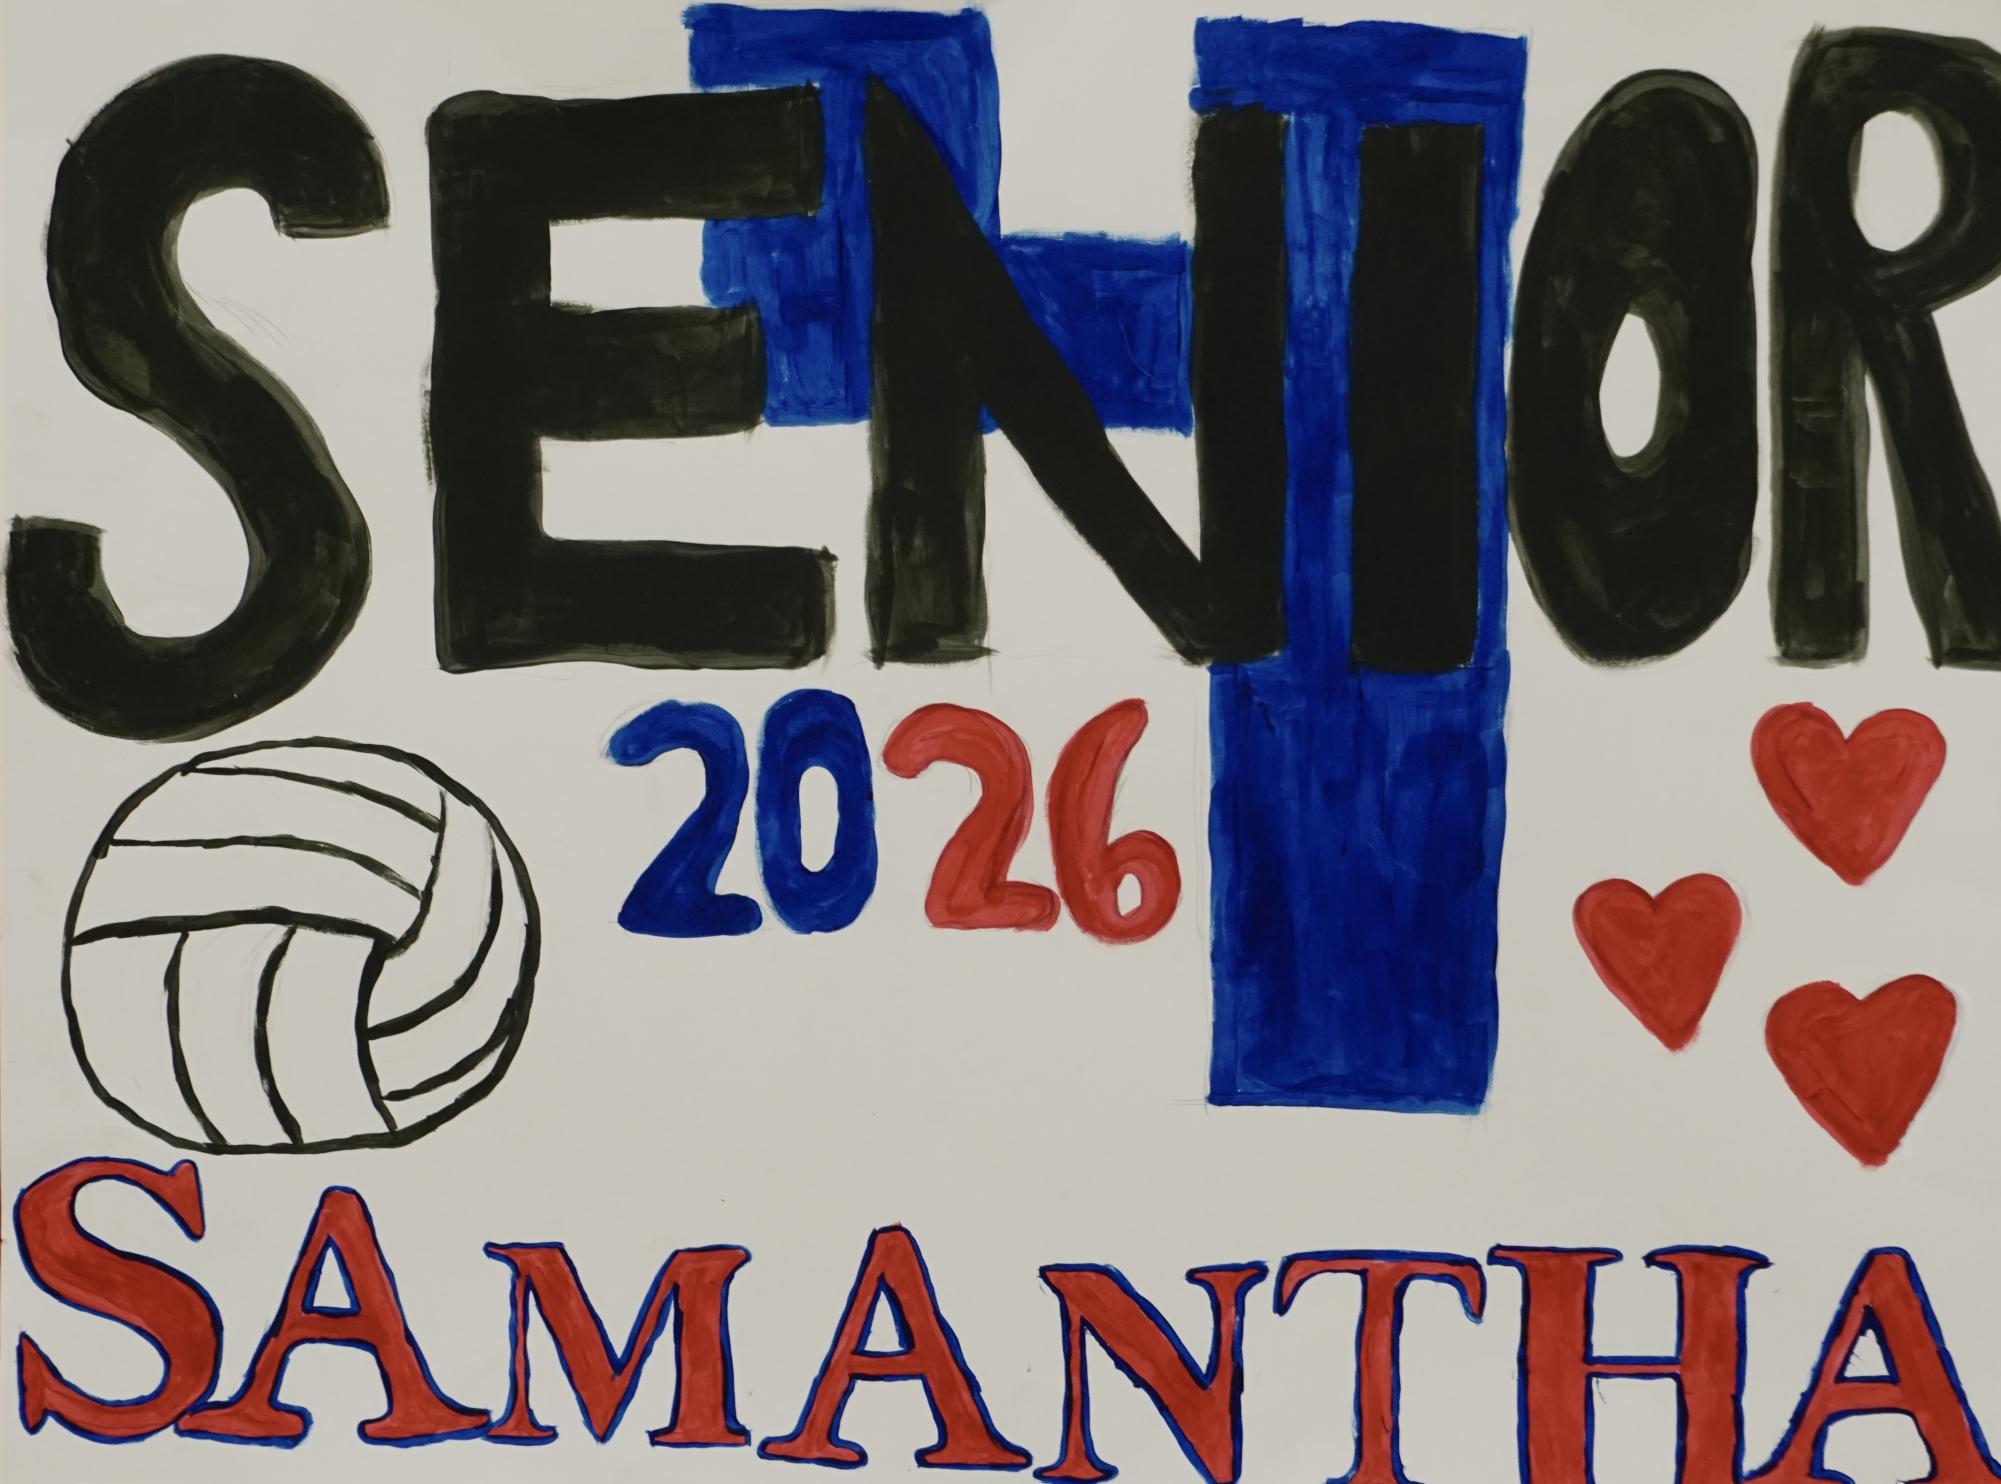 SENIOR
4
2026
SAMANTHA